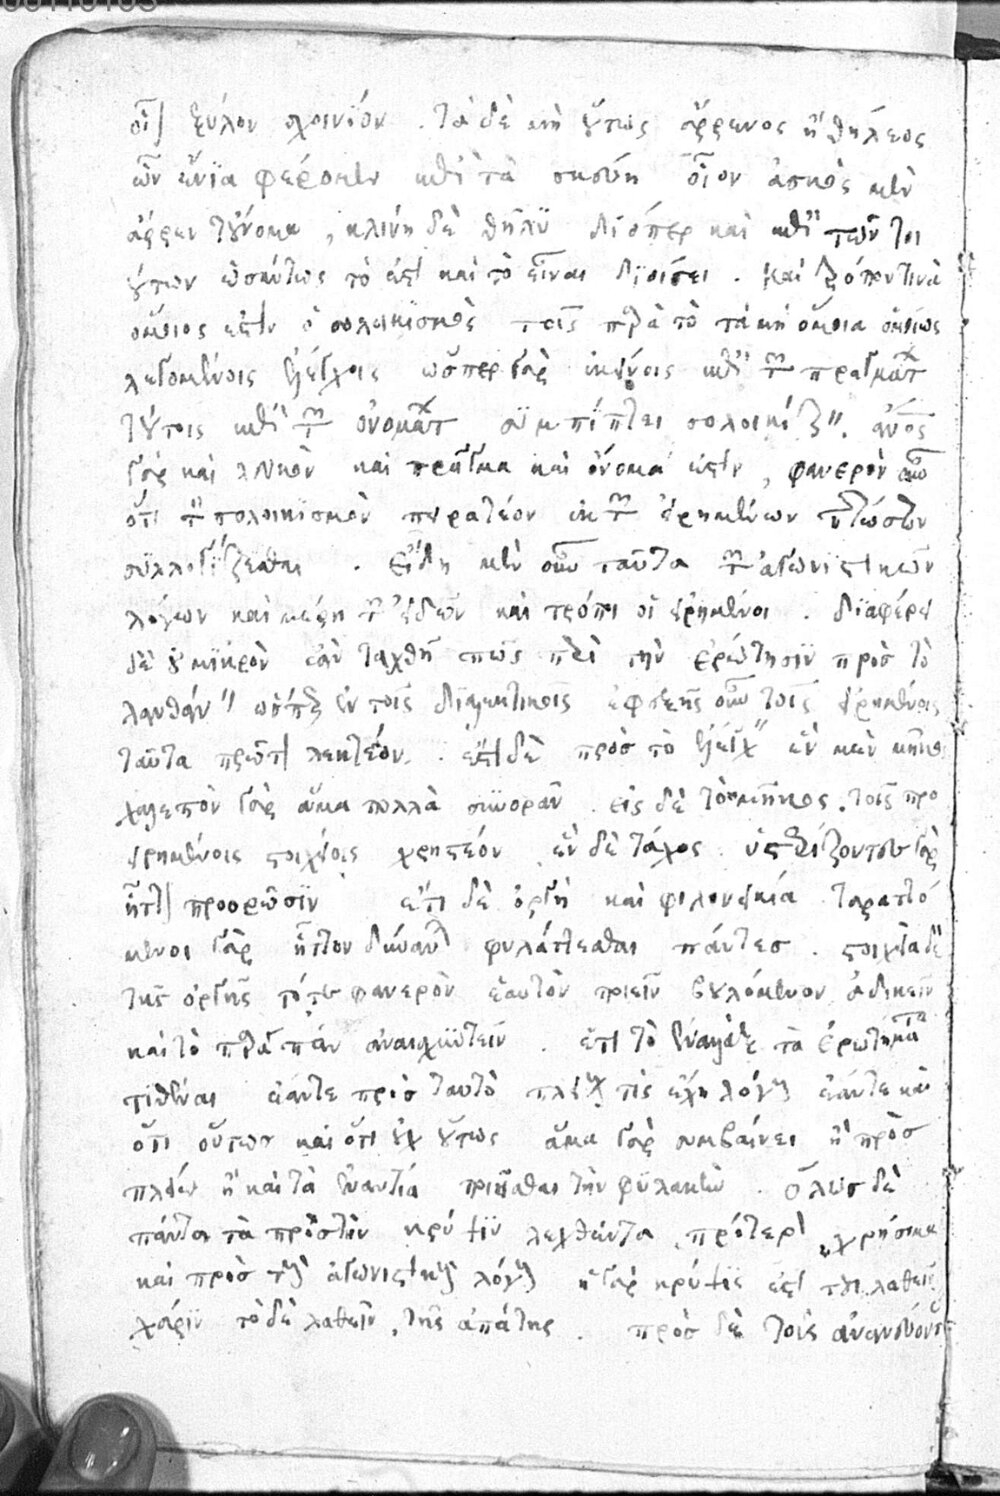 οἷον ξύλον σχοινίον. τὰ δὲ μὴ οὕτως ἄρρενος ἢ θήλεος
ὧν ἔνια φέρομεν κατὰ τὰ σκεύη οἷον ἀσκὸς μὲν
ἄρρεν τοὔνομα, κλίνη δὲ θῆλυ διόπερ καὶ κατὰ τῶν τοι
ούτων ὡσαύτως τὸ ἐστὶ καὶ τὸ εἶναι διοίσει. καὶ τρόπον τινὰ
ὅμοιός ἐστιν ὁ σολοικισμὸς τοῖς παρὰ τὸ τὰ μὴ ὅμοια ὁμοίως
λεγομένοις ἐλέγχοις ὥσπερ γὰρ ἐκείνοις κατὰ τῶν πραγμάτων
τούτοις κατὰ τῶν ὀνομάτων συμπίπτει σολοικίζειν. ἄνθρωπος
γὰρ καὶ λευκὸν καὶ πρᾶγμα καὶ ὄνομά ἐστιν, φανερὸν οὖν
ὅτι τὸν σολοικισμὸν πειρατέον ἐκ τῶν εἰρημένων πτώσεων
συλλογίζεσθαι. εἴδη μὲν οὖν ταῦτα τῶν ἀγωνιστικῶν
λόγων καὶ μέρη τῶν εἰδῶν καὶ τρόποι οἱ εἰρημένοι. διαφέρει
δὲ οὐ μικρὸν ἐὰν ταχθῇ πως περὶ τὴν ἐρώτησιν πρὸς τὸ
λανθάνειν ὥσπερ ἐν τοῖς διαλεκτικοῖς ἐφεξῆς οὖν τοῖς εἰρημένοις
ταῦτα πρῶτον λεκτέον. ἔστι δὲ πρὸς τὸ ἐλέγχειν ἓν μὲν μῆκος
χαλεπὸν γὰρ ἅμα πολλὰ συνορᾶν εἰς δὲ τὸ μῆκος τοῖς προ
ειρημένοις στοιχείοις χρηστέον ἓν δὲ τάχος ὑστερίζοντες γὰρ
ἧττον προορῶσιν ἔτι δὲ ὀργὴ καὶ φιλονεικία ταραττό
μενοι γὰρ ἧττον δύνανται φυλάττεσθαι πάντες. στοιχεῖα δὲ
τῆς ὀργῆς τό τε φανερὸν ἑαυτὸν ποιεῖν βουλόμενον ἀδικεῖν
καὶ τὸ παράπαν ἀναισχυντεῖν. ἔτι τὸ ἐναλλὰξ τὰ ἐρωτήματα
τιθέναι ἐάν τε πρὸς ταὐτὸ πλείους τις ἔχῃ λόγους ἐάν τε καὶ
ὅτι οὕτως καὶ ὅτι οὐχ οὕτως ἅμα γὰρ συμβαίνει ἢ πρὸς
πλείω ἢ καὶ τἀναντία ποιεῖσθαι τὴν φυλακὴν. ὅλως δὲ
πάντα τὰ πρὸς τὴν κρύψιν λεχθέντα πρότερον χρήσιμα
καὶ πρὸς τοὺς ἀγωνιστικοὺς λόγους ἡ γὰρ κρύψις ἐστὶ τοῦ λαθεῖν
χάριν τὸ δὲ λαθεῖν τῆς ἀπάτης. πρὸς δὲ τοὺς ἀνανεύοντας